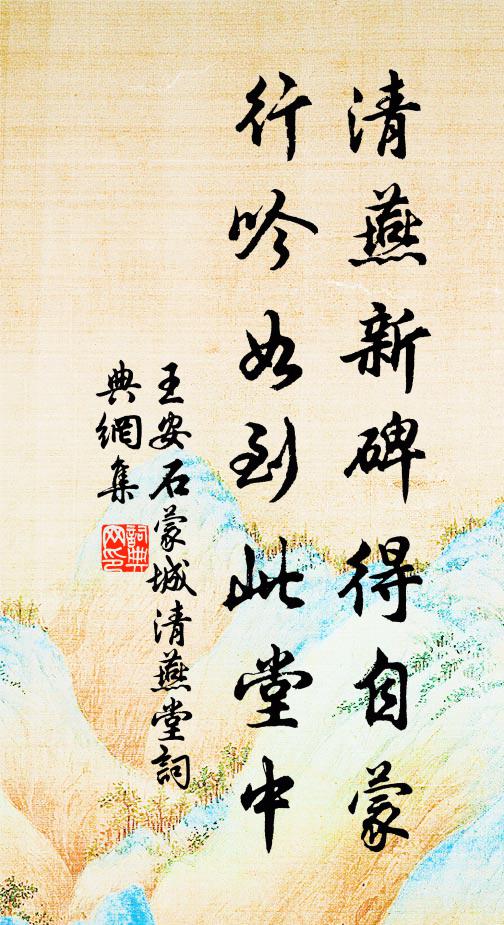 清燕新碑得自蒙
行吟如到此堂中
王安石蒙城清燕堂詞
典網集
詞典
网印